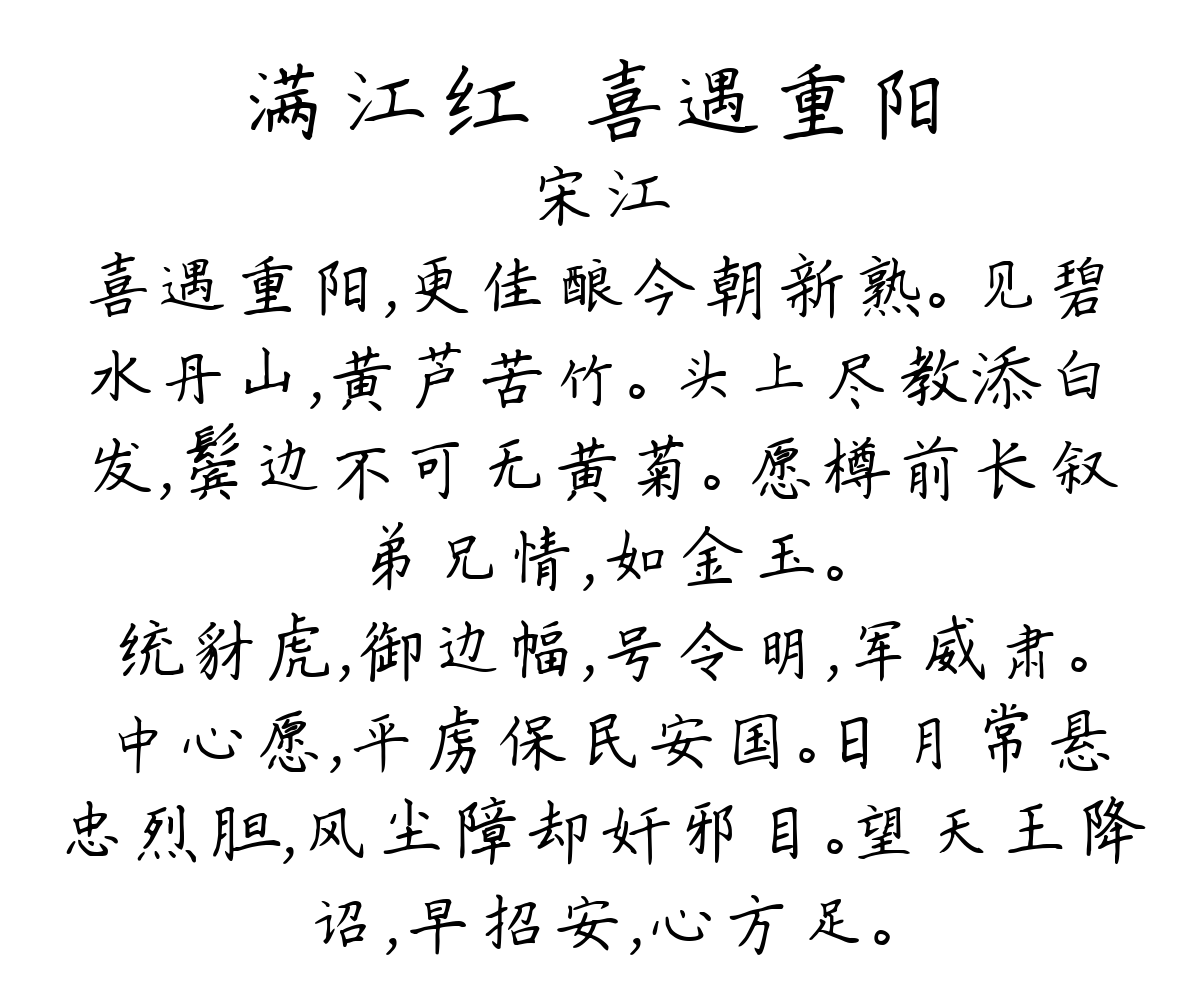 满江红 喜遇重阳
宋江
喜遇重阳,更佳酿今朝新熟。见碧
水丹山,黄芦苦竹。头上尽教添白
发,鬓边不可无黄菊。愿樽前长叙
弟兄情,如金玉。
统豺虎,御边幅,号令明,军威肃。
中心愿,平虏保民安国。日月常悬
忠烈胆,风尘障却奸邪目。望天王降
诏,早招安,心方足。